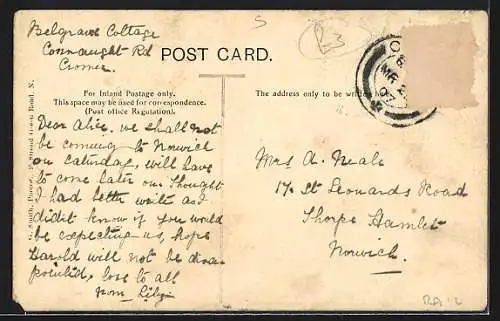 Belgrave Cottage
Connaught Rd
Cromer.
POST CARD.
For Inland Postage only.
This space may be used for correspondence.
(Post office Regulation).
The address only to be written here
Dear Alice. we shall not
be coming to Norwich
on Saturday, will have
to come later on. Thought
I had better write as I
didnt know if you would
be expecting us, hope
Harold will not be disa-
pointed, love to all
from
Mrs A. Neale
17 St Leonards Road
Thorpe Hamlet
Norwich.
Road, N.